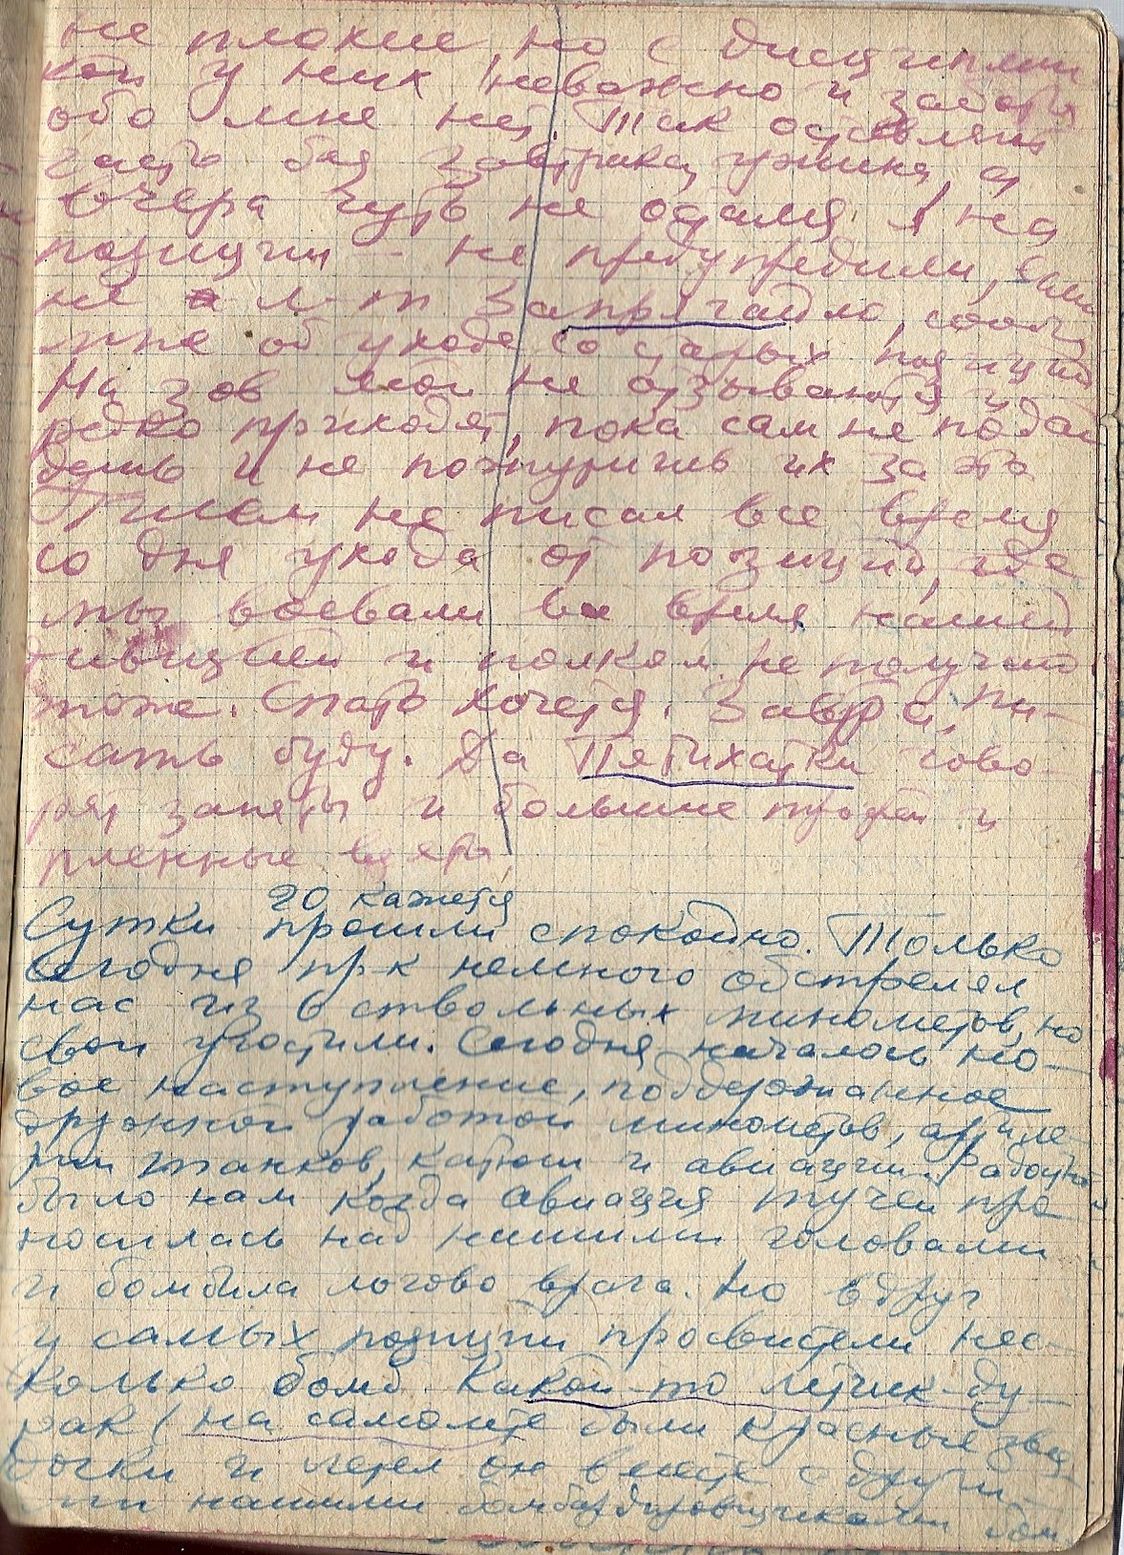 не плохие, но с дисципли
кой у них неважно и забота
обо мне нет. Так оставляют
часто без завтрака, ужина, а
вчера чуть не остался я на
позиции – не предупредили,
не л-т Запрягайло,
мне об уходе со старых позиций
На зов мой не отзываются и
редко приходят, пока сам не подой
дешь и не пожуришь их за это
Писем не писал все время
со дня ухода от позиций, где
мы воевали все время нашей
дивизией и полком. Не получал
тоже. Спать хочется. Завтра пи-
сать буду. Да Пятихатки гово-
рят заняты и большие трофеи и
пленные взяты
20 кажется
Сутки прошли спокойно. Только
сегодня пр-к немного обстрелял
нас из 6 ствольных минометов, но
свои угостили. Сегодня началось но-
вое наступление, поддержанное
дружной работой минометов, артиле-
рии танков, катюш и авиации. Радостно
было нам когда авиация тучей про
носилась над нашими головами
и бомбила логово врага. Но вдруг
у самых позиций просвистели нес-
колько бомб. Какой-то летчик-ду-
рак (на самолете были красные звез
дочки и летел он вместе с други-
ми нашими бомбардировщиками бом